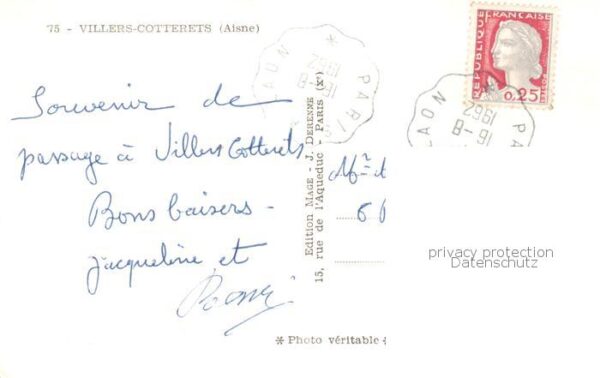 75 - VILLERS-COTTERETS (Aisne)
Souvenir de
passage à Villers Cotterets
Bons baisers -
jacqueline et
Edition MAGE - J. DERENNE
15, rue de l'Aqueduc - PARIS (Xe)
* Photo véritable
REPUBLIQUE FRANÇAISE
0,25
LAON * PARIS
16-8
1962
LAON PARIS
16-8
1962
privacy protection
Datenschutz